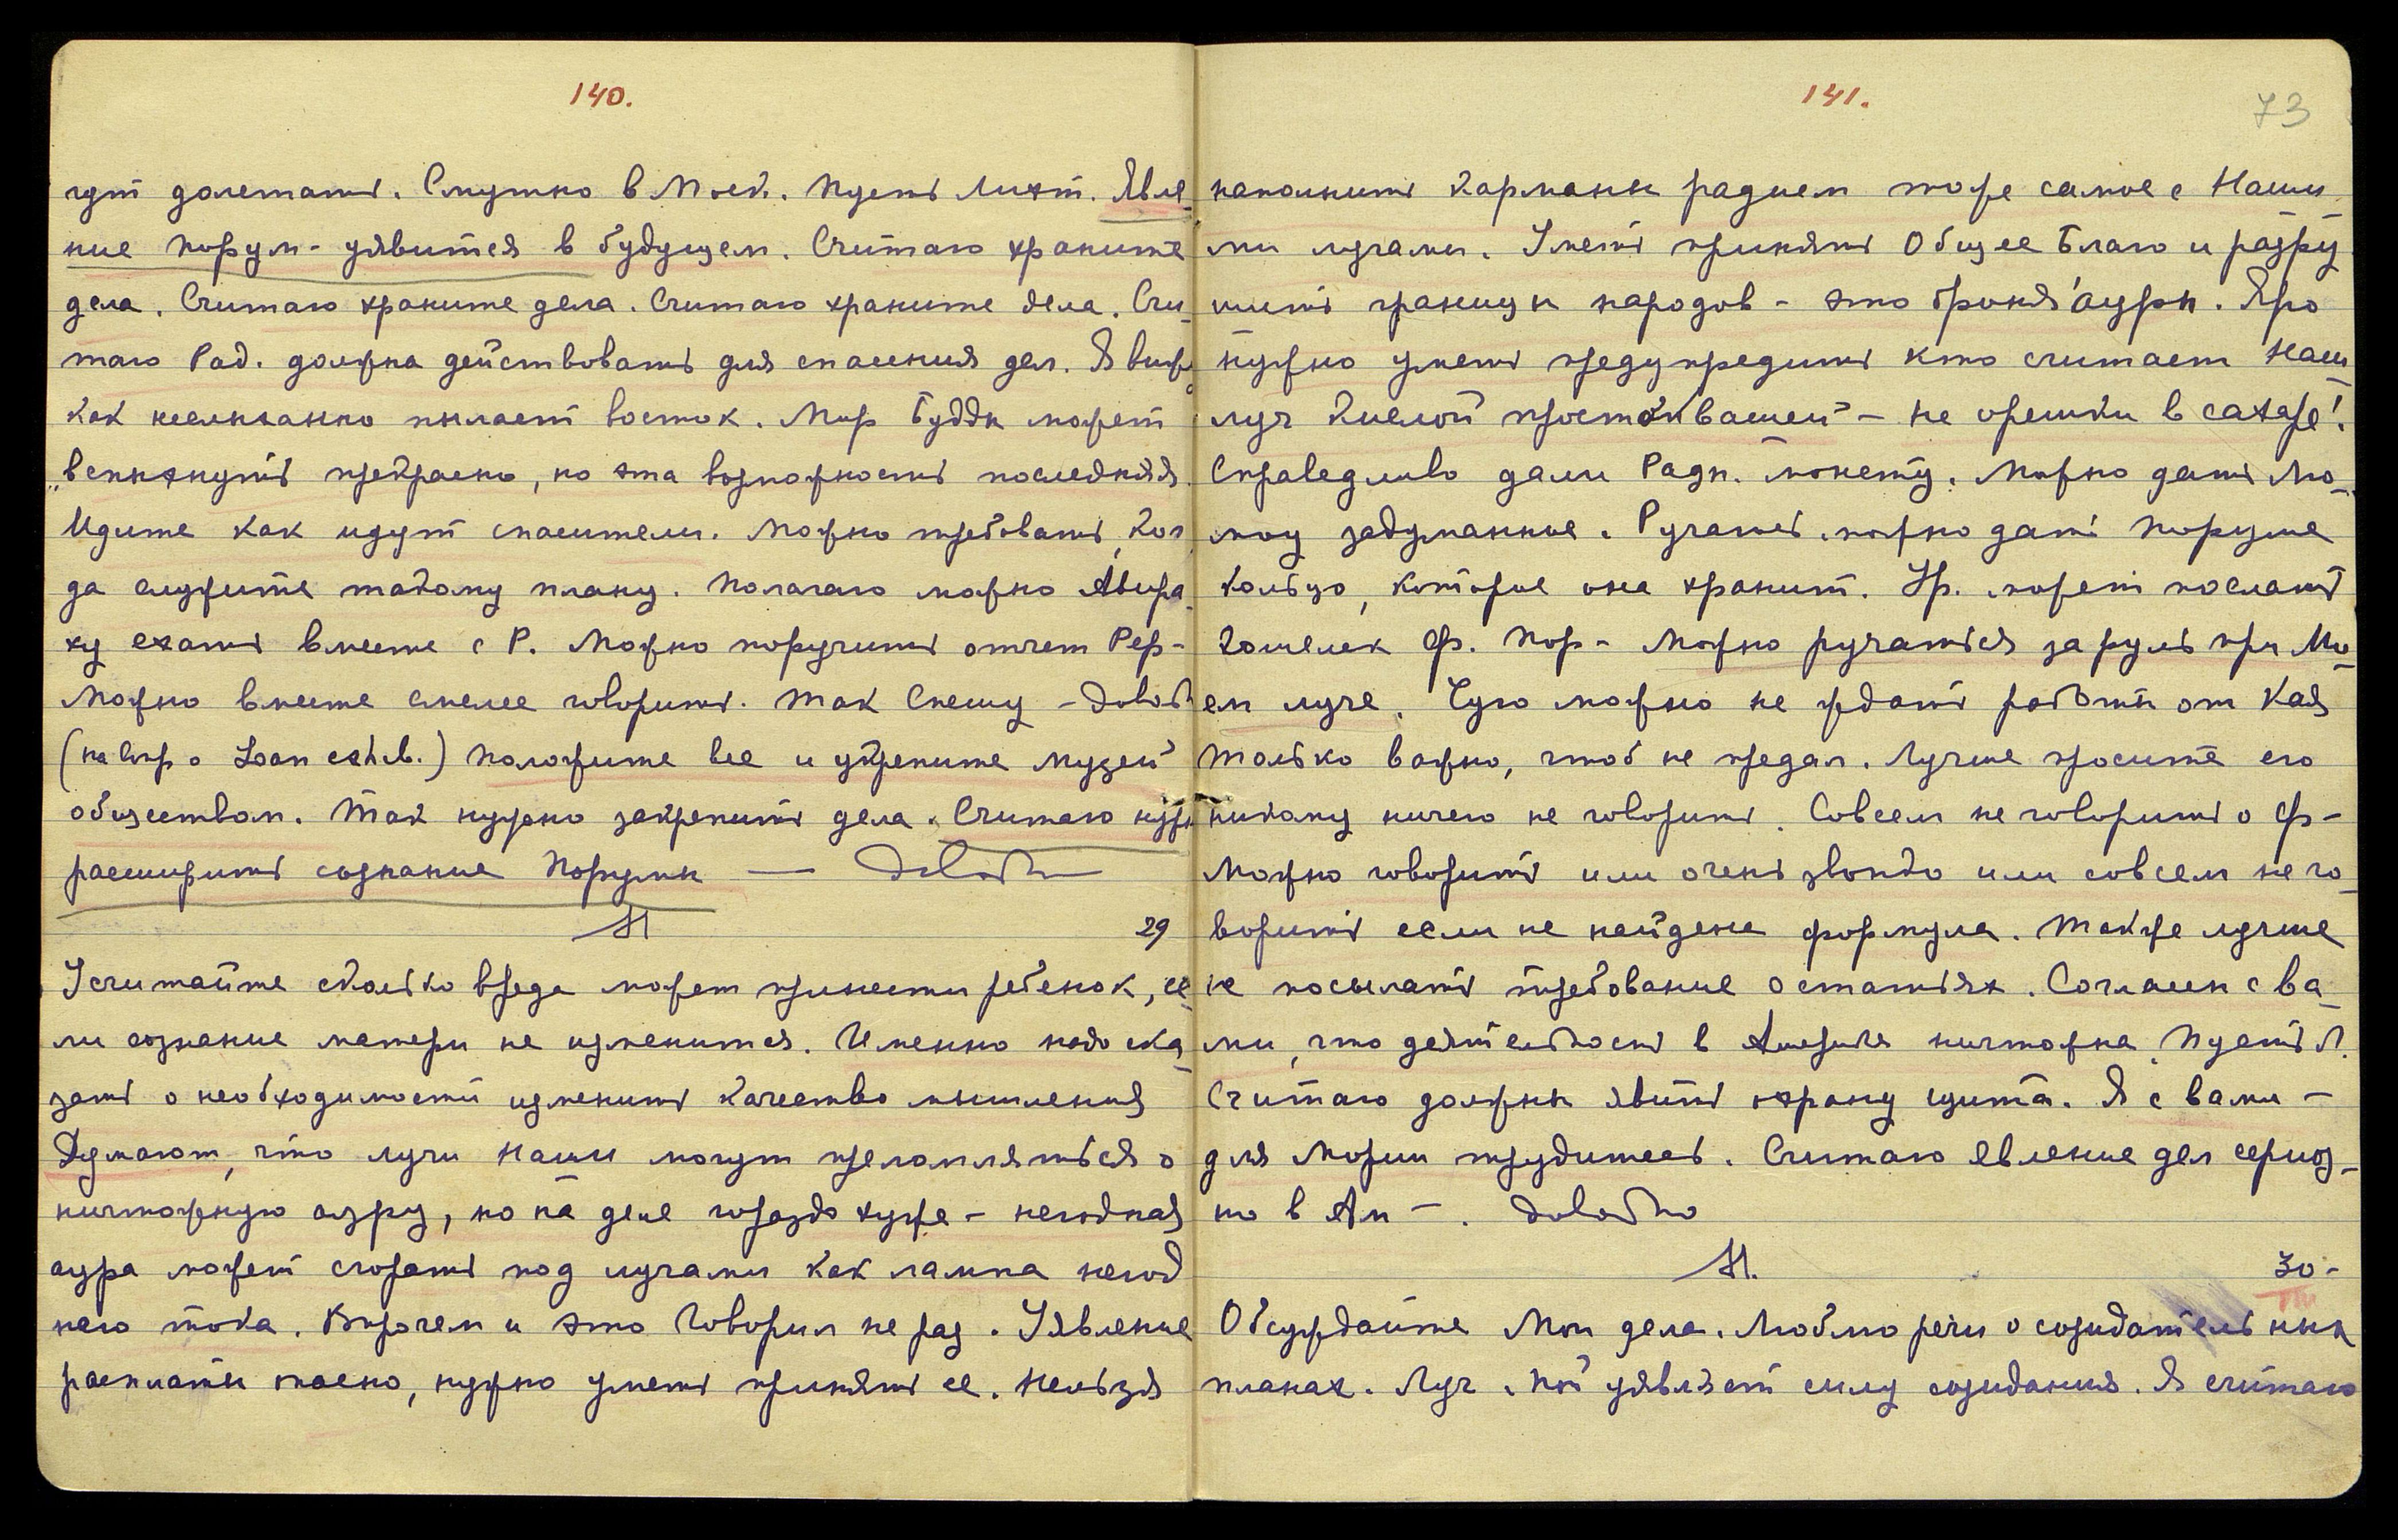 140.
гут долетать. Смутно в Моск. Пусть Лихт. Явле
ние Порум- уявится в будущем. Считаю храните
дела. Считаю храните дела. Считаю храните дела. Счи
таю Рад. должна действовать для спасения дел. Я вижу
как неслыханно пылает восток. Мир Будды может
вспыхнуть прекрасно, но эта возможность последняя.
Идите как идут спасители. Можно требовать, ког
да служите такому плану. Полагаю можно Авира
ху ехать вместе с Р. Можно поручить отчет Рер-
Можно вместе смелее говорить. Так Спешу - Довол
(на вопр о Loan ) Положите все и укрепите музей
обществом. Так нужно закрепить дела. Считаю нужн
расширить сознание Порумы — Довольно
29
Усчитайте сколько вреда может принести ребенок, ес
ли сознание матери не изменится. Именно надо ска
зать о необходимости изменить качество мышления
Думают, что лучи Наши могут преломляться о
ничтожную ауру, но на деле гораздо хуже - негодная
аура может сгорать под лучами как лампа негод
ного тока. Впрочем и это Говорил не раз. Уявление
расплаты опасно, нужно уметь принять ее. Нельзя
141.
73
наполнить карманы радием тоже самое с Наши
ми лучами. Уметь принять Общее Благо и разру
шить границы народов - это броня ауры. Яро
нужно уметь предупредить кто считает Наш
луч кислой простоквашей - не орешки в сахаре!
Справедливо дали Радн. монету. Можно дать Мо
ему задуманное. Ручаюсь можно дать Поруме
кольцо, которое она хранит. Ур. может послать
кошелек Ф. Пор - Можно ручаться за руль при Мо
ем луче. Чудо можно не ждать работы от Кая
только важно, чтоб не предал. Лучше просите его
никому ничего не говорить. Совсем не говорить о Ф-
Можно говорить или очень звонко или совсем не го
ворить если не найдена формула. Также лучше
не посылать требование о статьях. Согласен с ва
ми, что деятельность в Америке ничтожна. Пусть Л.
Считаю должны явить охрану щита. Я с вами -
для Мории трудитесь. Считаю явление дел сериоз-
но в Ам-. Довольно
30-
Обсуждайте Мои дела. Люблю речи о созидательных
планах. Луч Мой уявляет силу созидания. Я считаю